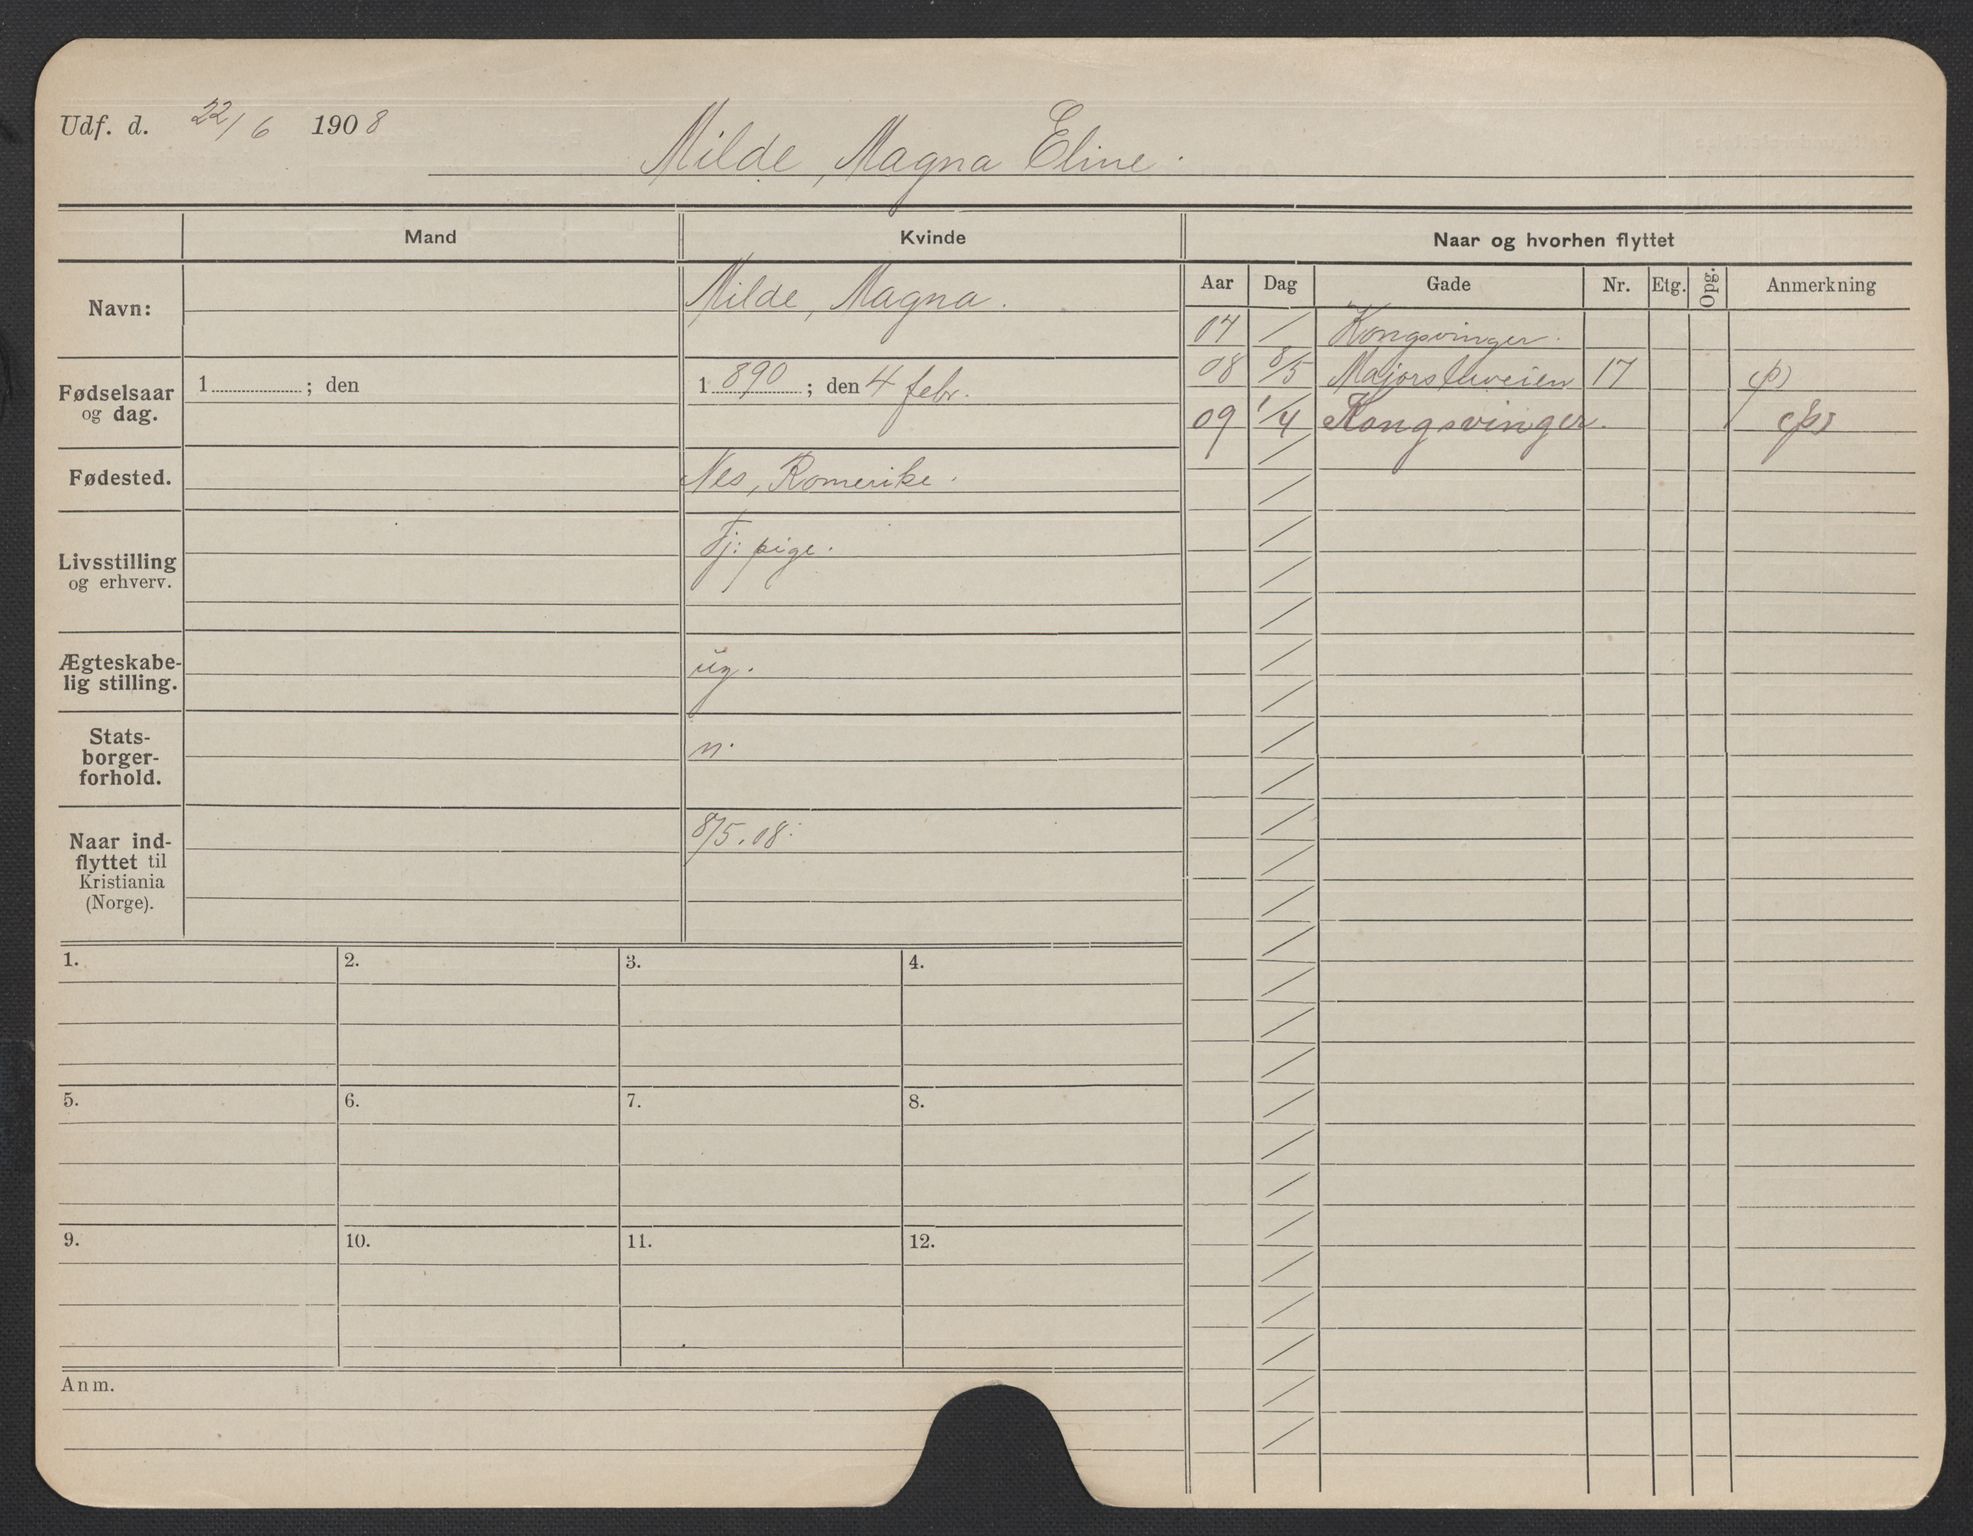 Udf. d. 22/6 1908
Milde, Magna Eline.
Mand Kvinde Naar og hvorhen flyttet
Navn: Milde, Magna.
Fødselsaar og dag. 1 ; den 1890 ; den 4 febr.
Fødested. Nes, Romerike.
Livsstilling og erhverv. Tj: pige.
Ægteskabe-
lig stilling. ug.
Stats-
borger-
forhold. n.
Naar ind-
flyttet til
Kristiania
(Norge). 8/5.08.
Aar Dag Gade Nr. Etg. Opg. Anmerkning
04 / Kongsvinger.
08 8/5 Majorstuveien 17 (p)
09 1/4 Kongsvinger. (ps)
1. 2. 3. 4.
5. 6. 7. 8.
9. 10. 11. 12.
Anm.